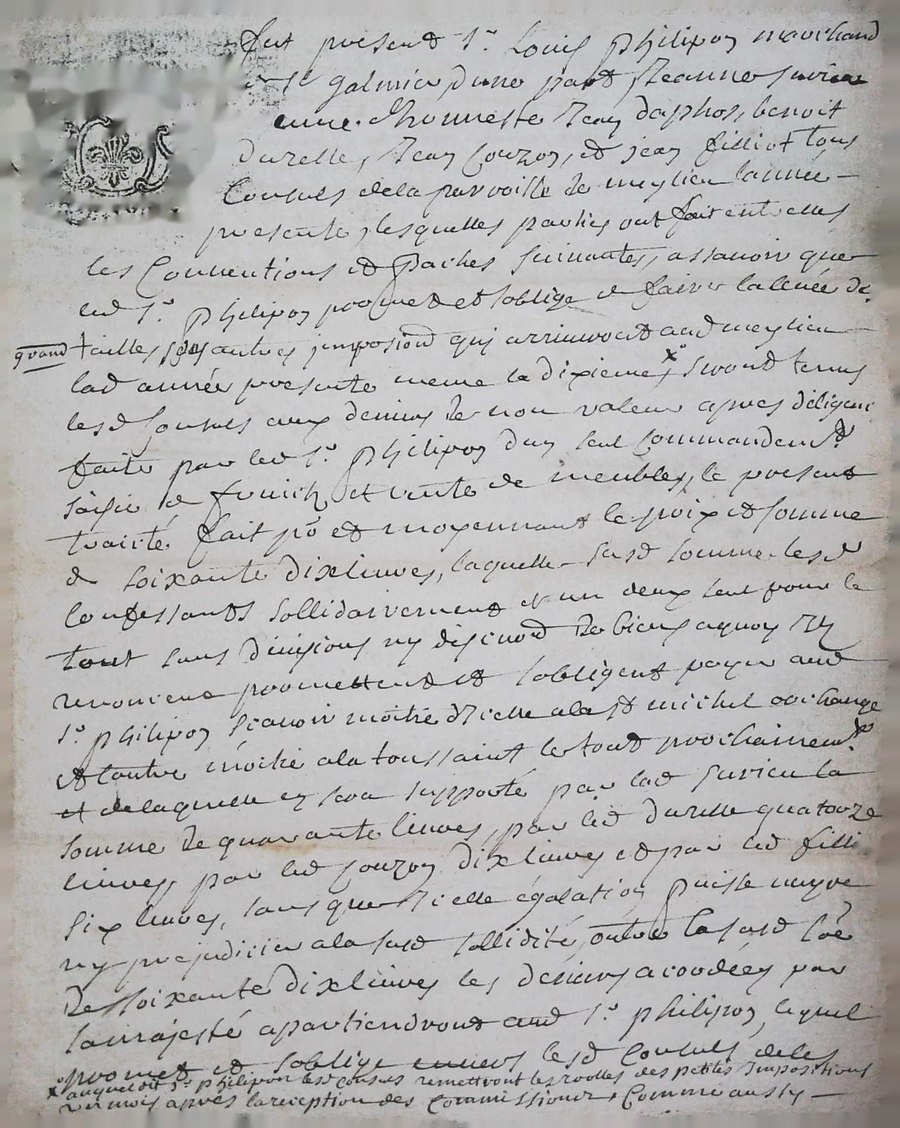 fut présent Sr Louis philipon marchand
de St galmier d'une part, Jeanne
veuve d'honneste Jean daphos, benoit
durelle, Jean Couzon, et jean filliot tous
Consuls de la parroisse de meylieu lannée
presente, lesquelles parties ont fait entrelles
les Conventions et paches suivantes, assavoir que
led Sr philipon promet et soblige de faire la levée de
grand tailles et autres imposions qui arriveront aud meylieu
lad année presente meme la dixieme x seront tenus
lesd Consuls aux deniers de non valeur apres diligence
faite par led Sr philipon dun seul Commandemt
saisie de fruich et vente de meubles, le present
traité fait pr et moyennant le prix et somme
de soixante dix livres, laquelle susd somme lesd
Confessants sollidairement et un deux seul pour le
tout sans divisions ny discuord de biens a quoy ils
renoncent promettent et sobligent payer aud
Sr philipon scavoir moitié dicelle a la St michel archange
et lautre moitié a la toussaint le tout prochainemt
et de laquelle en sera supporté par lad la
somme de quarante livres, par led durelle quatorze
livres, par led Couzon dix livres et par led filli
six livres, sans que icelle égalation puisse nuyre
ny prejudicier a la susd sollidité, outre la susd soe
de soixante dix livres les deniers accordées par
sa majesté apartiendront aud Sr philipon, lequel
promet et soblige envers lesd Consuls de les
x auquel dit Sr philipon lesd Consuls remettront les roolles des petites Impositions
un mois après la réception des Commissions Comme aussy